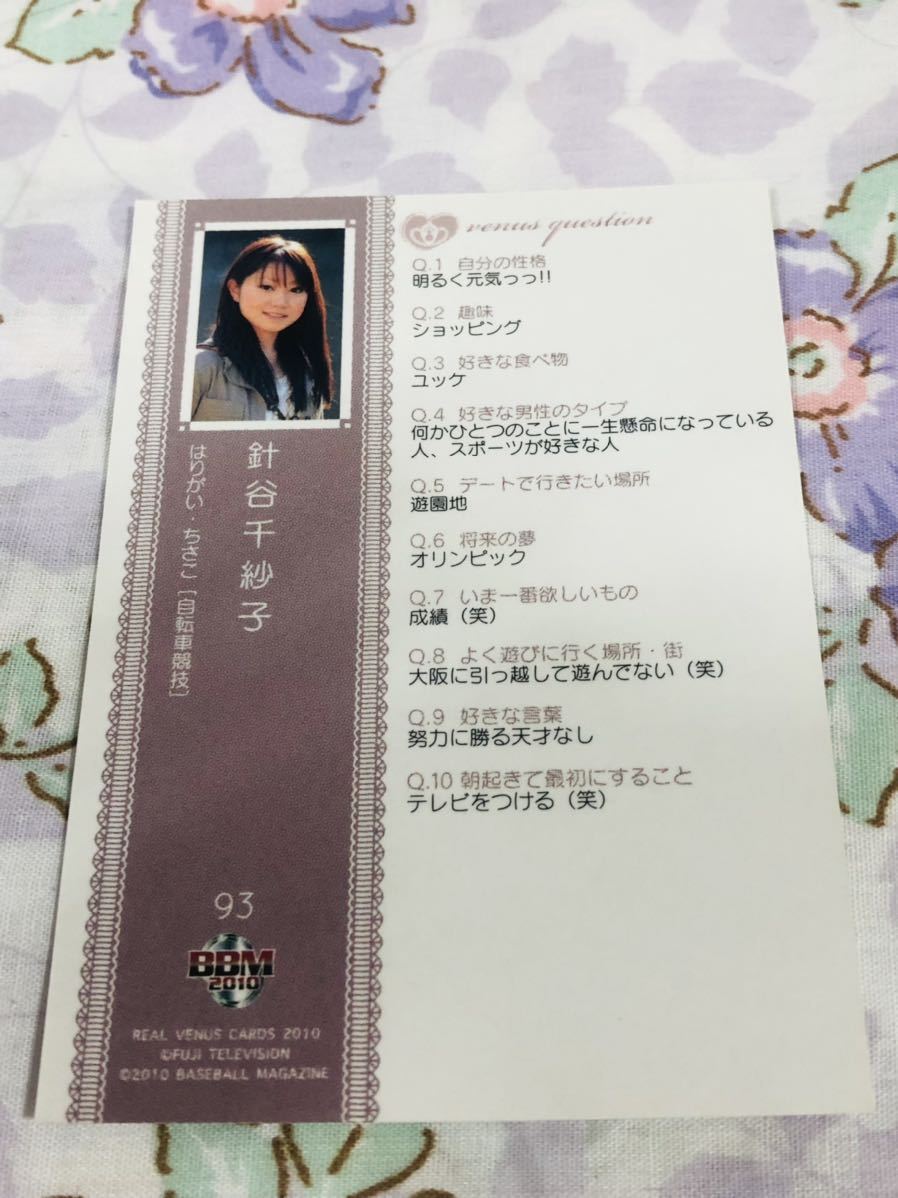 venus question
Q.1 自分の性格
明るく元気っっ!!
Q.2 趣味
ショッピング
Q.3 好きな食べ物
ユッケ
Q.4 好きな男性のタイプ
何かひとつのことに一生懸命になっている
人、スポーツが好きな人
Q.5 デートで行きたい場所
遊園地
Q.6 将来の夢
オリンピック
Q.7 いま一番欲しいもの
成績（笑）
Q.8 よく遊びに行く場所・街
大阪に引っ越して遊んでない（笑）
Q.9 好きな言葉
努力に勝る天才なし
Q.10 朝起きて最初にすること
テレビをつける（笑）
針谷千紗子
はりがい・ちさこ［自転車競技］
93
BBM
2010
REAL VENUS CARDS 2010
©FUJI TELEVISION
©2010 BASEBALL MAGAZINE